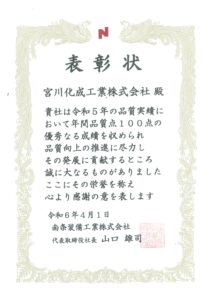 N
表彰状
宮川化成工業株式会社 殿
貴社は令和5年の品質実績に
おいて年間品質点100点の
優秀なる成績を収められ
品質向上の推進に尽力し
その発展に貢献するところ
誠に大なるものがありました
ここにその栄誉を称え
心より感謝の意を表します
令和6年4月1日
南条装備工業株式会社
代表取締役社長 山口 雄司